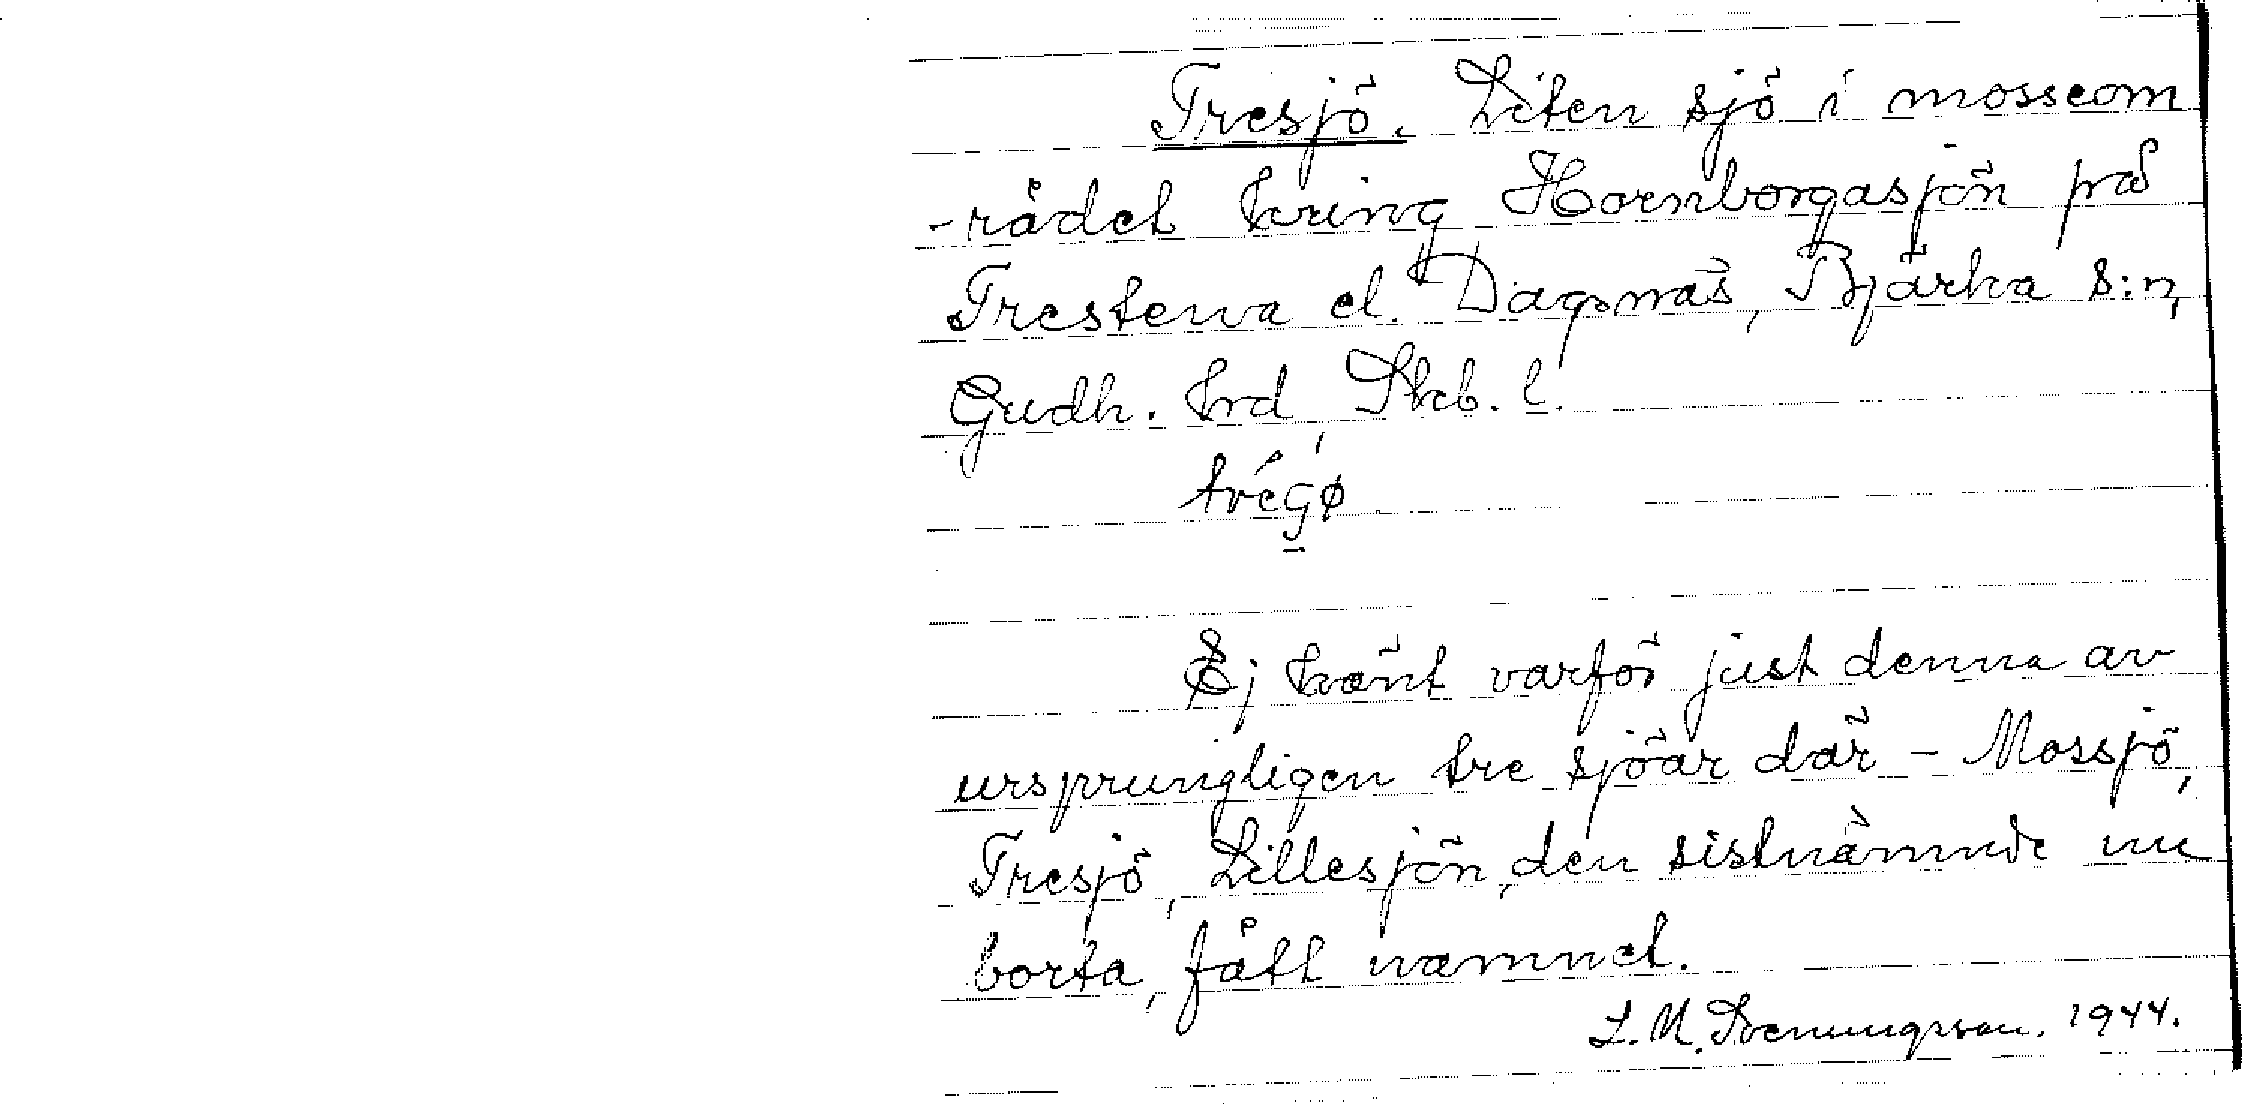 Tresjö. Liten sjö i mosseom
-rådet kring Hornborgasjön på
Trestena el. Dagsnäs, Bjärka s:n,
Gudh. hrd, Skb. l.
Ej känt varför just denna av
ursprungligen tre sjöar där - Mossjö,
Tresjö, Lillesjön, den sistnämnde nu
borta, fått namnet.
L. M. Svenungsson. 1944.